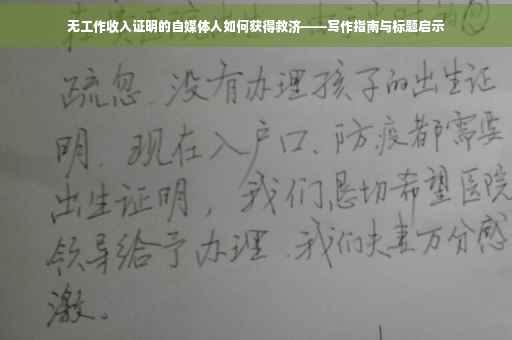 无工作收入证明的自媒体人如何获得救济——写作指南与标题启示
疏忽、没有办理孩子的出生证
明、现在入户口、防疫都需要
出生证明，我们恳切希望医院
领导给予办理、我们夫妻万分感
激。